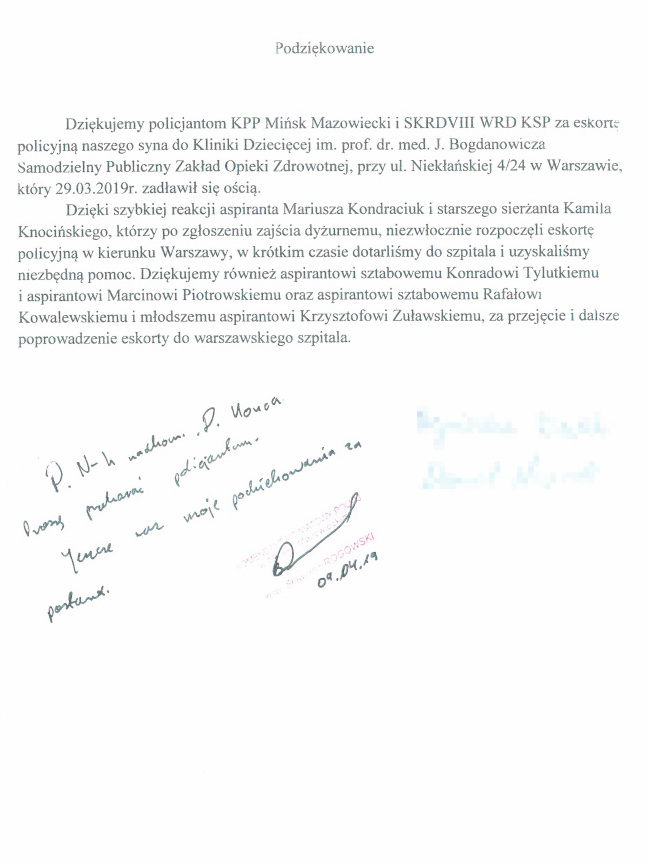 Podziękowanie
Dziękujemy policjantom KPP Mińsk Mazowiecki i SKRDVIII WRD KSP za eskortę
policyjną naszego syna do Kliniki Dziecięcej im. prof. dr. med. J. Bogdanowicza
Samodzielny Publiczny Zakład Opieki Zdrowotnej, przy ul. Niekłańskiej 4/24 w Warszawie,
który 29.03.2019r. zadławił się ością.
Dzięki szybkiej reakcji aspiranta Mariusza Kondraciuk i starszego sierżanta Kamila
Knocińskiego, którzy po zgłoszeniu zajścia dyżurnemu, niezwłocznie rozpoczęli eskortę
policyjną w kierunku Warszawy, w krótkim czasie dotarliśmy do szpitala i uzyskaliśmy
niezbędną pomoc. Dziękujemy również aspirantowi sztabowemu Konradowi Tylutkiemu
i aspirantowi Marcinowi Piotrowskiemu oraz aspirantowi sztabowemu Rafałowi
Kowalewskiemu i młodszemu aspirantowi Krzysztofowi Żuławskiemu, za przejęcie i dalsze
poprowadzenie eskorty do warszawskiego szpitala.
P. N-k nadkom. D. Konca
Proszę przekazać policjantom.
oraz moje podziękowania za
postawę.
ROGOWSKI
09.04.19